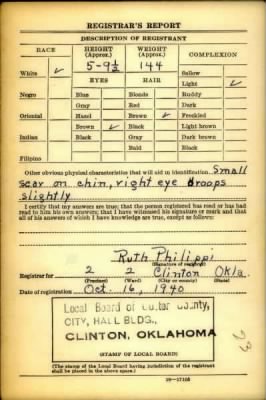 REGISTRAR'S REPORT
DESCRIPTION OF REGISTRANT
RACE HEIGHT (Approx.) WEIGHT (Approx.) COMPLEXION
5-9½ 144 Sallow
White ✓ EYES HAIR Light ✓
Negro Blue Blonde Ruddy
Gray Red Dark
Oriental Hazel Brown ✓ Freckled
Brown ✓ Black Light brown
Indian Black Gray Dark brown
Bald Black
Filipino
Other obvious physical characteristics that will aid in identification Small
scar on chin, right eye droops
slightly
I certify that my answers are true; that the person registered has read or has had
read to him his own answers; that I have witnessed his signature or mark and that
all of his answers of which I have knowledge are true, except as follows:
Ruth Philippi
(Signature of registrar)
Registrar for 2 2 Clinton Okla.
(Precinct) (Ward) (City or county) (State)
Date of registration Oct 16, 1940
Local Board of Custer County,
CITY, HALL BLDG.,
CLINTON, OKLAHOMA
(STAMP OF LOCAL BOARD)
(The stamp of the Local Board having jurisdiction of the registrant
shall be placed in the above space.)